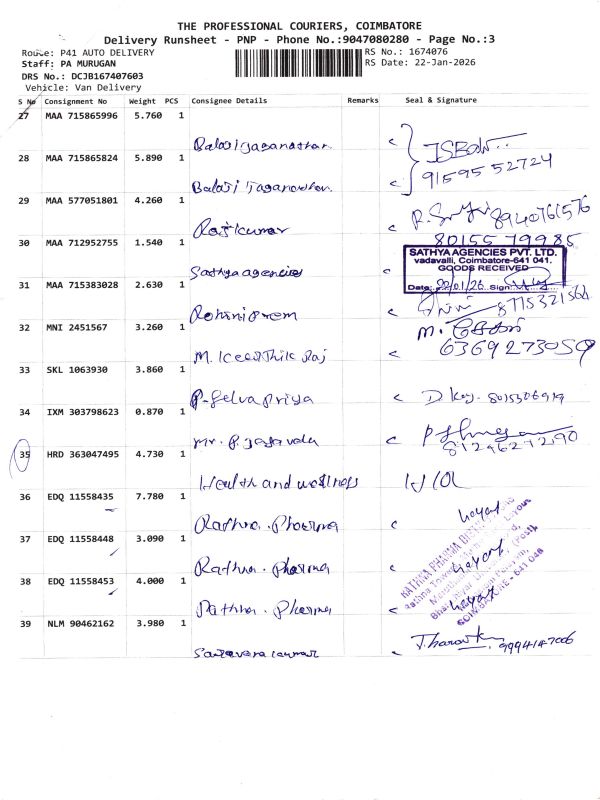 THE PROFESSIONAL COURIERS, COIMBATORE
Delivery Runsheet - PNP - Phone No.:9047080280 - Page No.:3
Route: P41 AUTO DELIVERY
RS No.: 1674076
Staff: PA MURUGAN
RS Date: 22-Jan-2026
DRS No.: DCJB167407603
Vehicle: Van Delivery
S No Consignment No Weight PCS Consignee Details Remarks Seal & Signature
27 MAA 715865996 5.760 1
Balaji Jaganathan
28 MAA 715865824 5.890 1
91595 52724
Balaji Jaganathan
29 MAA 577051801 4.260 1
8940761576
Rajkumar
30 MAA 712952755 1.540 1
80155 79985
SATHYA AGENCIES PVT. LTD.
vadavalli, Coimbatore-641 041.
GOODS RECEIVED
Sathya agencies
31 MAA 715383028 2.630 1
Date: 22/01/26 Sign:
8775321564
Rohini Prem
32 MNI 2451567 3.260 1
6369273059
M. Keerthik Raj
33 SKL 1063930 3.860 1
P. Selva Priya
8015306919
34 IXM 303798623 0.870 1
Mr. P Jagavelu
8129627290
35 HRD 363047495 4.730 1
Health and wellness
36 EDQ 11558435 7.780 1
Rathna. Pharma
37 EDQ 11558448 3.090 1
Rathna. Pharma
38 EDQ 11558453 4.000 1
Rathna. Pharma
COIMBATORE - 641 046
39 NLM 90462162 3.980 1
9994147006
Saravana kumar